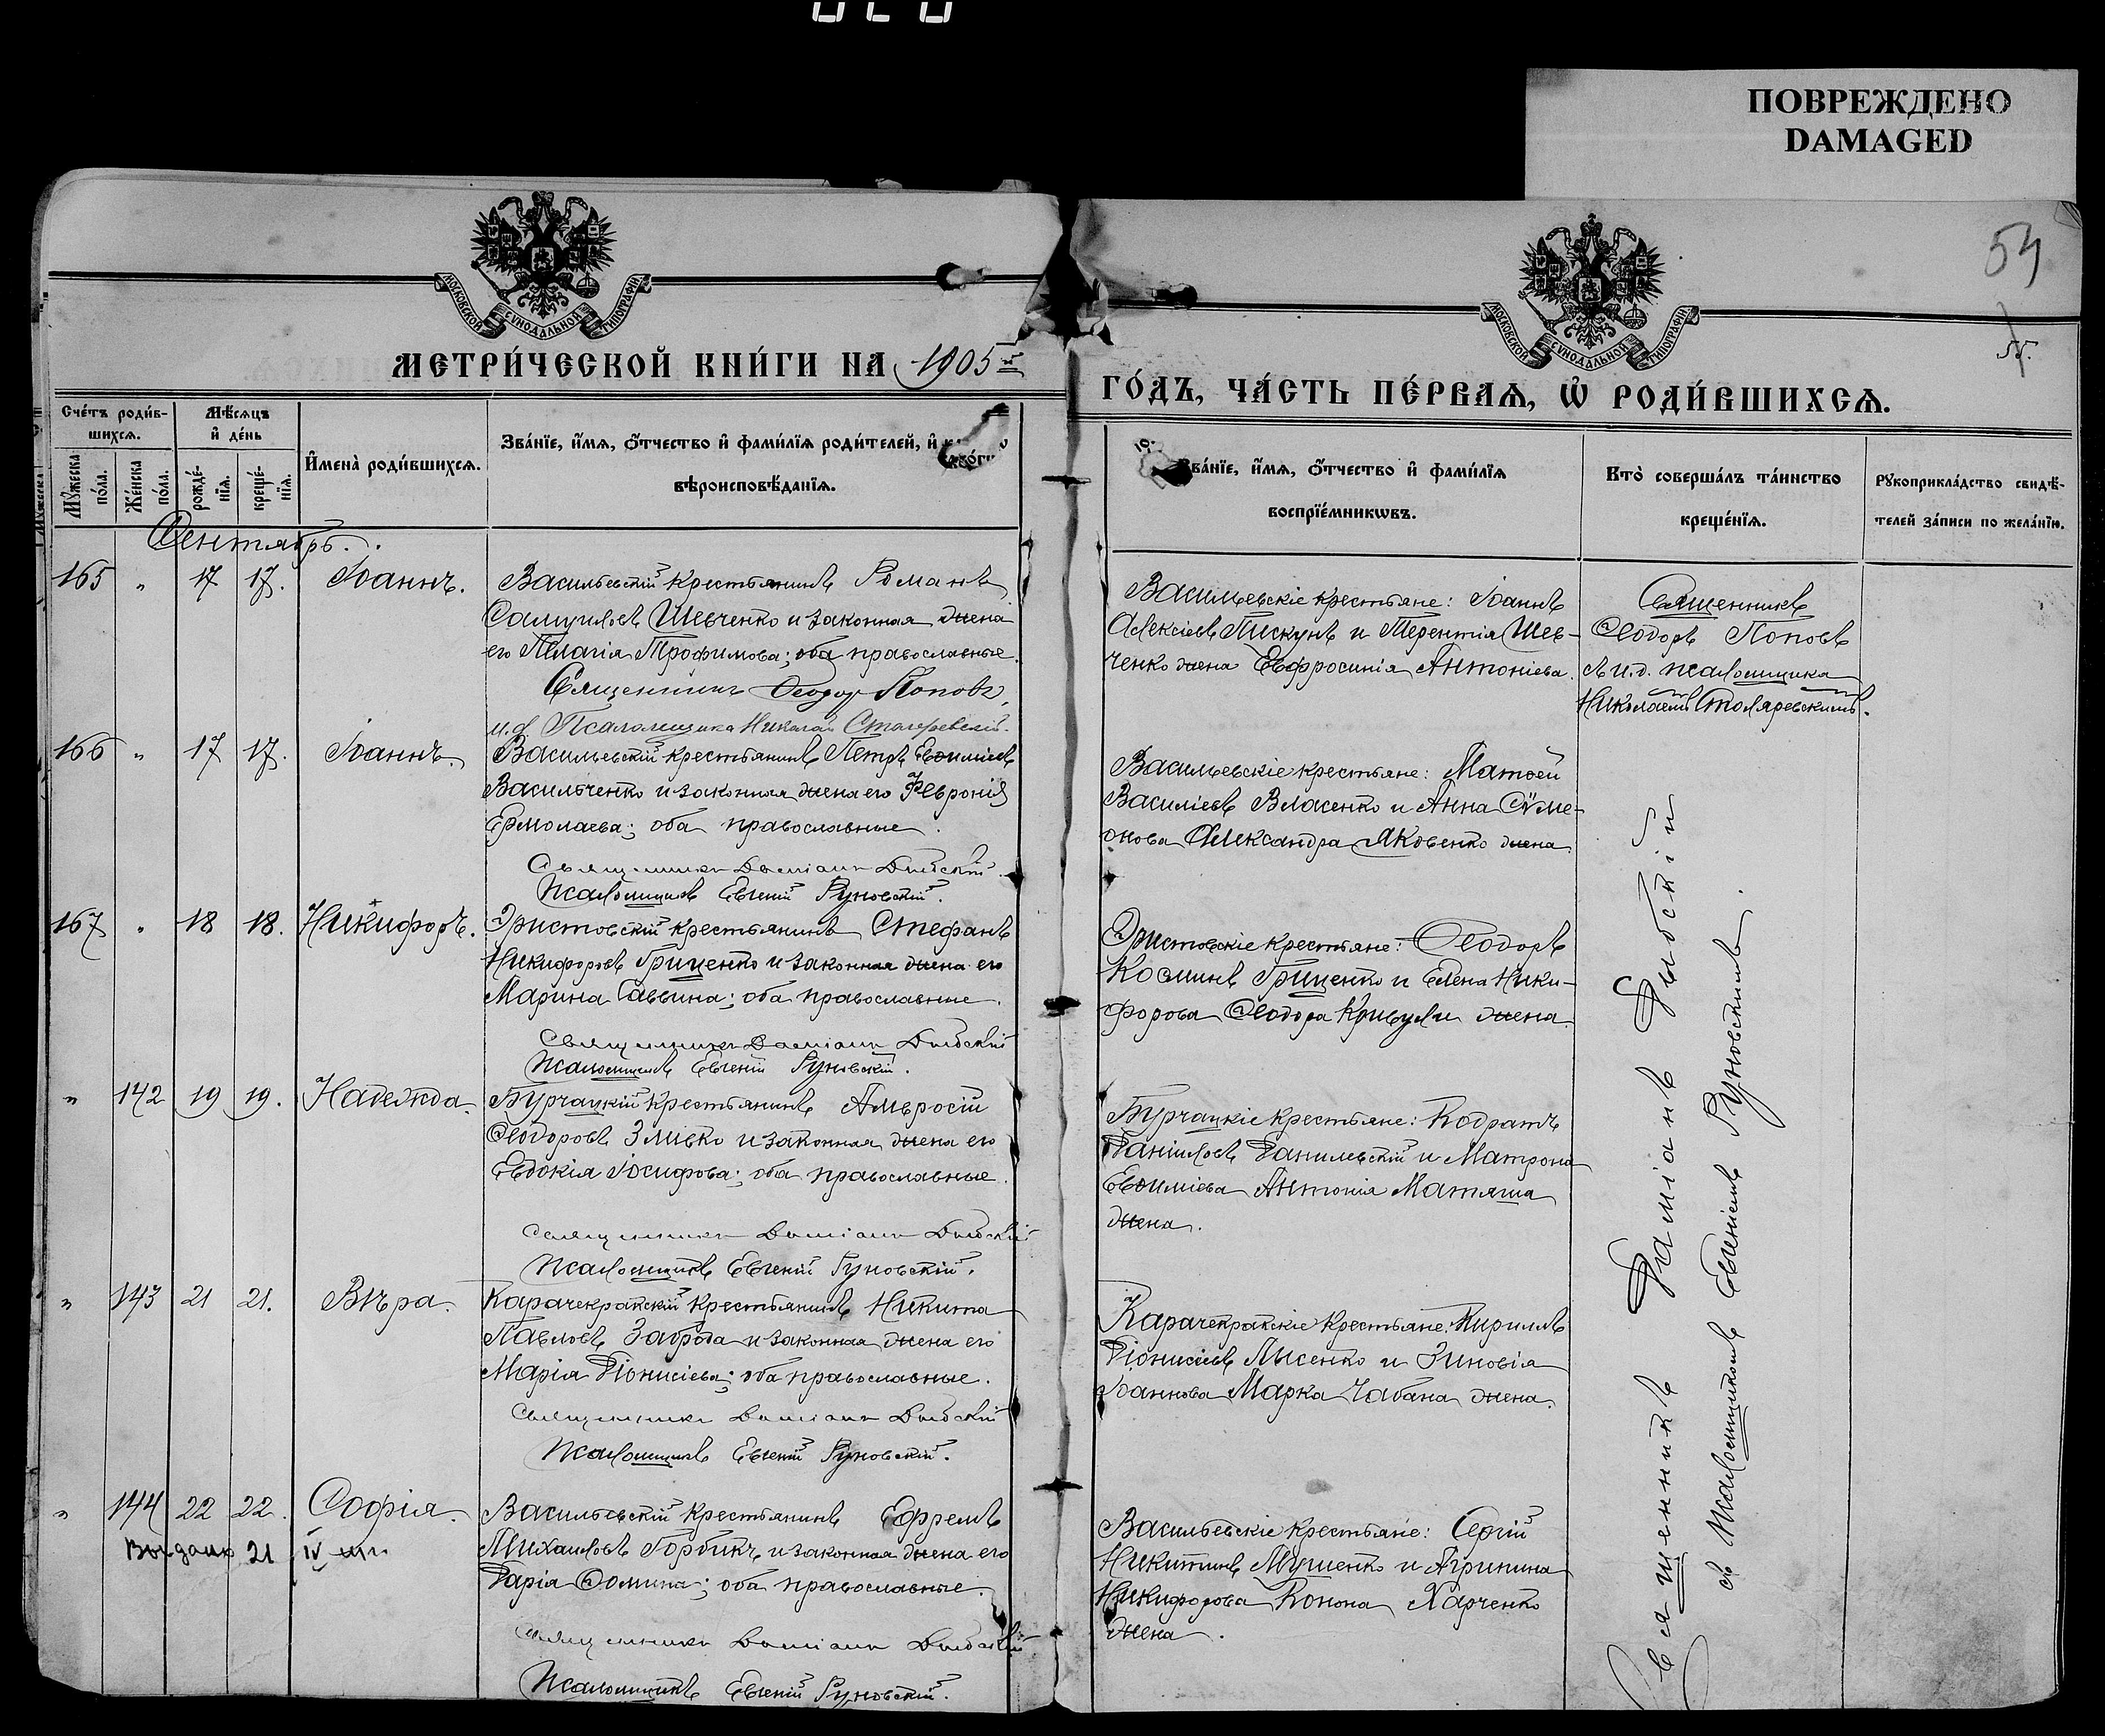 ПОВРЕЖДЕНО
DAMAGED
54
55.
МОСКОВСКОЙ СѴНОДАЛЬНОЙ ТИПОГРАФІИ
МОСКОВСКОЙ СѴНОДАЛЬНОЙ ТИПОГРАФІИ
МЕТРИ́ЧЕСКОЙ КНИ́ГИ НА 1905й
ГО́ДЪ, ЧА́СТЬ ПЕ́РВАѦ, Ѽ РОДИ́ВШИХСѦ.
Сче́тъ роди́в-
шихсѧ.
Мѣ́сѧцъ
и҆ де́нь
Мꙋ́жеска по́ла.
Же́нска по́ла.
рожде́-
нїѧ.
креще́-
нїѧ.
И҆мена̀ роди́вшихсѧ.
Зва́нїе, и҆́мѧ, ѻ҆́тчество и҆ фами́лїѧ роди́телей, и҆
вѣроисповѣ́данїѧ.
ва́нїе, и҆́мѧ, ѻ҆́тчество и҆ фами́лїѧ
воспрїе́мникѡвъ.
Кто̀ соверша́лъ та́инство
креще́нїѧ.
Рꙋкоприкла́дство свидѣ́-
телей за́писи по жела́нїю.
Сентябрь.
165 " 17 17. Іоаннъ.
Васильевскій крестьянинъ Романъ
Самуиловъ Шевченко и законная жена
его Пелагія Трофимова; оба православные.
Священникъ Ѳеодоръ Поповъ,
и.д. Псаломщика Николай Столяревскій.
Васильевскіе крестьяне: Іоаннъ
Алексіевъ Пискунъ и Терентія Шев-
ченко жена Евфросинія Антоніева.
Священникъ
Ѳеодоръ Поповъ
съ и.д. псаломщика
Николаемъ Столяревскимъ.
166 " 17 17. Іоаннъ.
Васильевскій крестьянинъ Петръ Евѳиміевъ
Васильченко и законная жена его Февронія
Ермолаева; оба православные.
Священникъ Даміанъ Дыбскій
Псаломщикъ Евгеній Руновскій.
Васильевскіе крестьяне: Матѳей
Василіевъ Власенко и Анна Сѵме-
онова Александра Яковенко жена.
167 " 18 18. Никифоръ.
Эристовскій крестьянинъ Стефанъ
Никифоровъ Гриценко и законная жена его
Марина Саввина; оба православные.
Священникъ Даміанъ Дыбскій
Псаломщикъ Евгеній Руновскій.
Эристовскіе крестьяне: Ѳеодоръ
Косминъ Гриценко и Елена Ники-
форова Ѳеодора Кривули жена.
" 142 19 19. Надежда.
Бурчацкій крестьянинъ Амвросій
Ѳеодоровъ Зміевко и законная жена его
Евдокія Іосифова; оба православные.
Священникъ Даміанъ Дыбскій
Псаломщикъ Евгеній Руновскій.
Бурчацкіе крестьяне: Кодратъ
Даніиловъ Данилевскій и Матрона
Евѳиміева Антонія Матяша
жена.
" 143 21 21. Вѣра.
Карачекракскій крестьянинъ Никита
Павловъ Заброда и законная жена его
Марія Діонисіева; оба православные.
Священникъ Даміанъ Дыбскій
Псаломщикъ Евгеній Руновскій.
Карачекракскіе крестьяне: Кириллъ
Діонисіевъ Лысенко и Зиновія
Іоаннова Марка Чабана жена.
" 144 22 22. Софія.
Выдано 21 IV
Васильевскій крестьянинъ Ефремъ
Михаиловъ Горбикъ и законная жена его
Дарія Ѳомина; оба православные.
Священникъ Даміанъ Дыбскій
Псаломщикъ Евгеній Руновскій.
Васильевскіе крестьяне: Сергій
Никитинъ Мушенко и Агрипина
Никифорова Конона Харченко
жена.
Священникъ Даміанъ Дыбскій
съ Псаломщикомъ Евгеніемъ Руновскимъ.